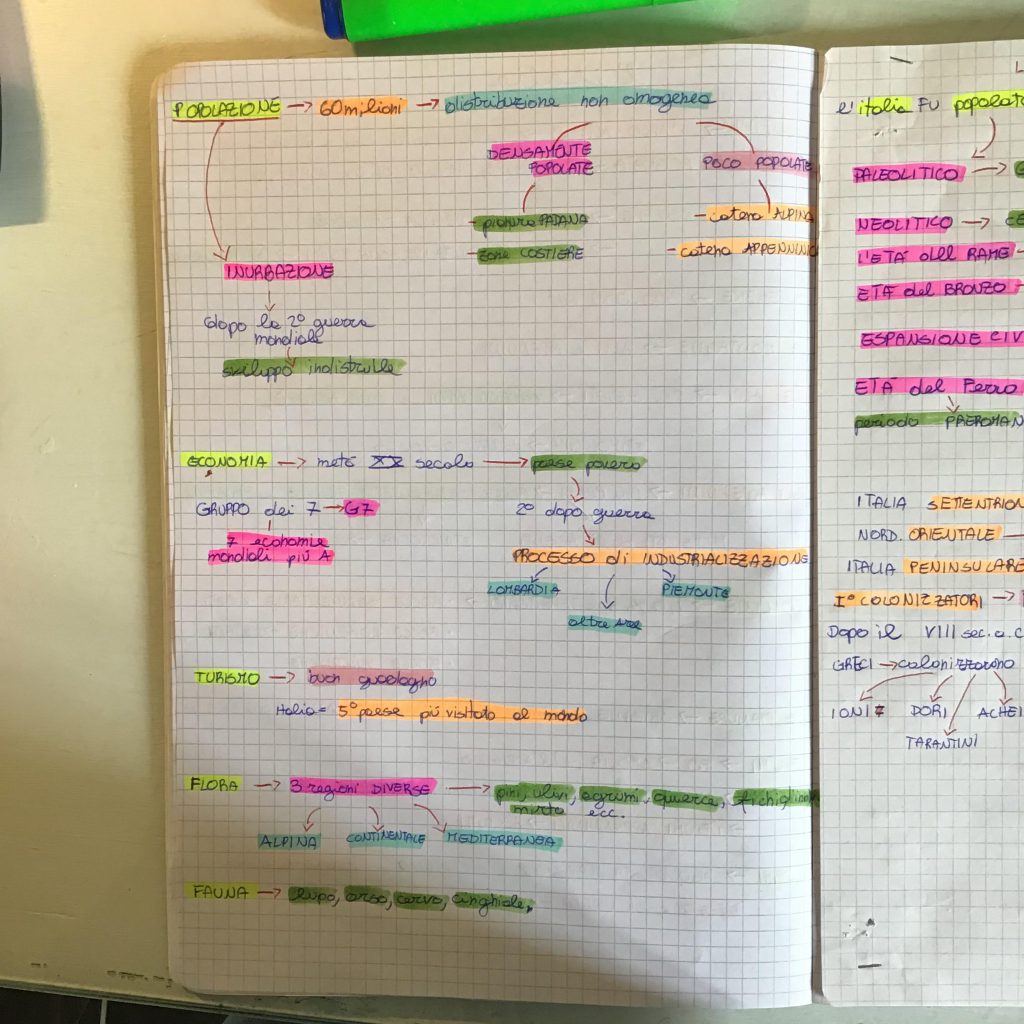 POPOLAZIONE → 60 milioni → distribuzione non omogenea
DENSAMENTE
POPOLATE
POCO POPOLATE
- pianura PADANA
- catena ALPINA
- zone COSTIERE
- catena APPENNINIC
INURBAZIONE
dopo la 2° guerra
mondiale
sviluppo
ECONOMIA → metà XX secolo → paese povero
GRUPPO dei 7 → G7
2° dopo guerra
7 economie
mondiali più A
PROCESSO di INDUSTRIALIZZAZIONE
LOMBARDIA
PIEMONTE
altre
TURISMO → buon guadagno
Italia = 5° paese più visitato al mondo
FLORA → 3 regioni DIVERSE → pini, ulivi, agrumi, querce,
mirto ecc.
ALPINA
CONTINENTALE
MEDITERRANEA
FAUNA → lupo, orso, cervo, cinghiale.
l'italia FU popolat
PALEOLITICO →
NEOLITICO →
L'ETÀ dell RAME
ETÀ del BRONZO
ESPANSIONE CIV
ETÀ del Ferro
periodo PREROMAN
ITALIA SETTENTRION
NORD. ORIENTALE
ITALIA PENINSULARE
I° COLONIZZATORI →
Dopo il VIII sec. a. c
GRECI → colonizzarono
IONI
DORI
ACHEI
TARANTINI